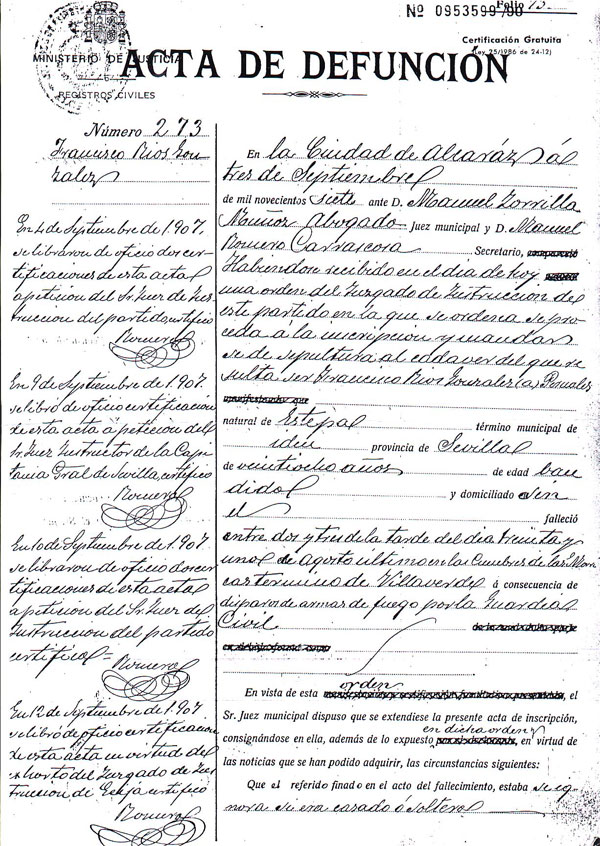 Folio 75
Nº 0953599/90
Certificación Gratuita
(Ley 25/1986 de 24-12)
MINISTERIO DE JUSTICIA
REGISTROS CIVILES
ACTA DE DEFUNCIÓN
Número 273
Francisco Rios Gon
zalez
En 4 de Septiembre de 1.907.
se libraron de oficio dos cer-
tificaciones de esta acta
a peticion del Sr. Juez de Ins-
truccion del partido, certifico
Romero
En 9 de Septiembre de 1.907.
se libro de oficio certificacion
de esta acta a peticion del
Sr. Juez Instructor de la Capi
tania Gral de Sevilla, certifico
Romero
En 10 de Septiembre de 1.907.
se libraron de oficio dos cer-
tificaciones de esta acta
a peticion del Sr. Juez de
Instruccion del partido
certifico =
Romero
En 12 de Septiembre de 1.907
se libro de oficio certificacion
de esta acta en virtud de
exhorto del Juzgado de Ins
truccion de Ecija certifico
Romero
En la Ciudad de Alcaráz á
tres de Septiembre
de mil novecientos siete ante D. Manuel Zorrilla
Muñoz Abogado Juez municipal y D. Manuel
Romero Carrascosa Secretario,
Habiendose recibido en el dia de hoy
una orden del Juzgado de Instruccion de
este partido en la que se ordena se pro
ceda á la inscripcion y mandar
se de sepultura al cadaver del que re
sulta ser Francisco Rios Gonzalez (a) Pernales
manifestando que
natural de Estepa término municipal de
idem provincia de Sevilla
de veintiocho años de edad ban
dido y domiciliado sin
el falleció
entre dos y tres de la tarde del dia treinta y
uno de agosto último en las Cumbres de las Mora
cas termino de Villaverde á consecuencia de
disparos de armas de fuego por la Guardia
Civil
orden
En vista de esta , el
Sr. Juez municipal dispuso que se extendiese la presente acta de inscripción,
en dicha orden
consignándose en ella, además de lo expuesto , en virtud de
las noticias que se han podido adquirir, las circunstancias siguientes:
Que el referido finado en el acto del fallecimiento, estaba se ig
nora si era casado ó soltero